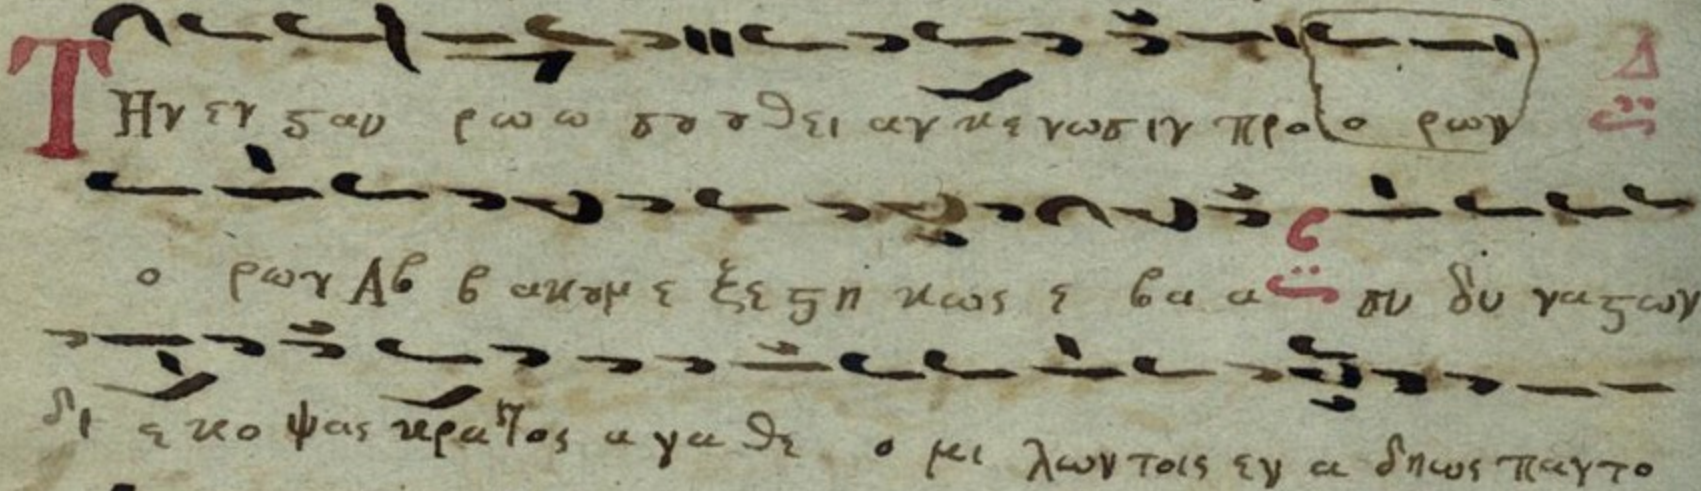 Την εν σταυ ρω ω σου ου θει αν κε νωσιν προ ο ρων
ο ρων Αβ β ακουμ ε ξε στη κως ε βα α συ δυ ναστων
δι ε κο ψας κρατος α γα θε ο μι λων τοις εν α δη ως παντο